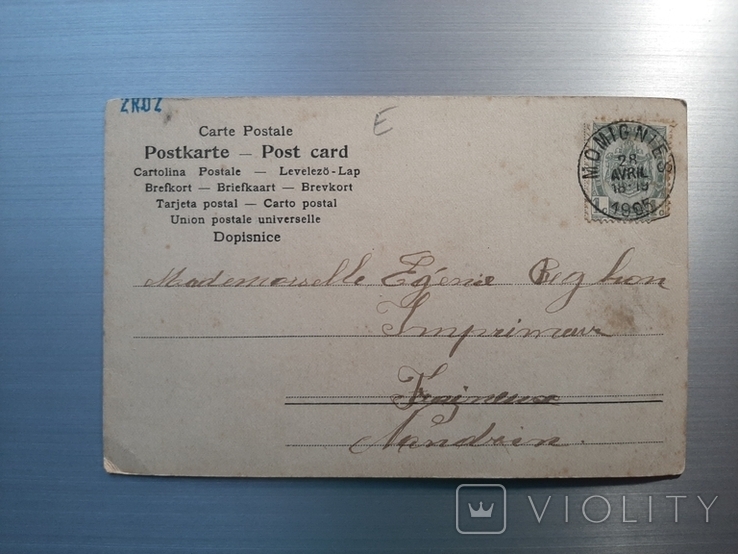 ZRDZ
E
Carte Postale
Postkarte — Post card
Cartolina Postale — Levelezö-Lap
Brefkort — Briefkaart — Brevkort
Tarjeta postal — Carto postal
Union postale universelle
Dopisnice
MOMIGNIES
28
AVRIL
18-19
1905
Mademoiselle Egénie Reghon
Imprimeur
Fraineux
Nandrin.
VIOLITY